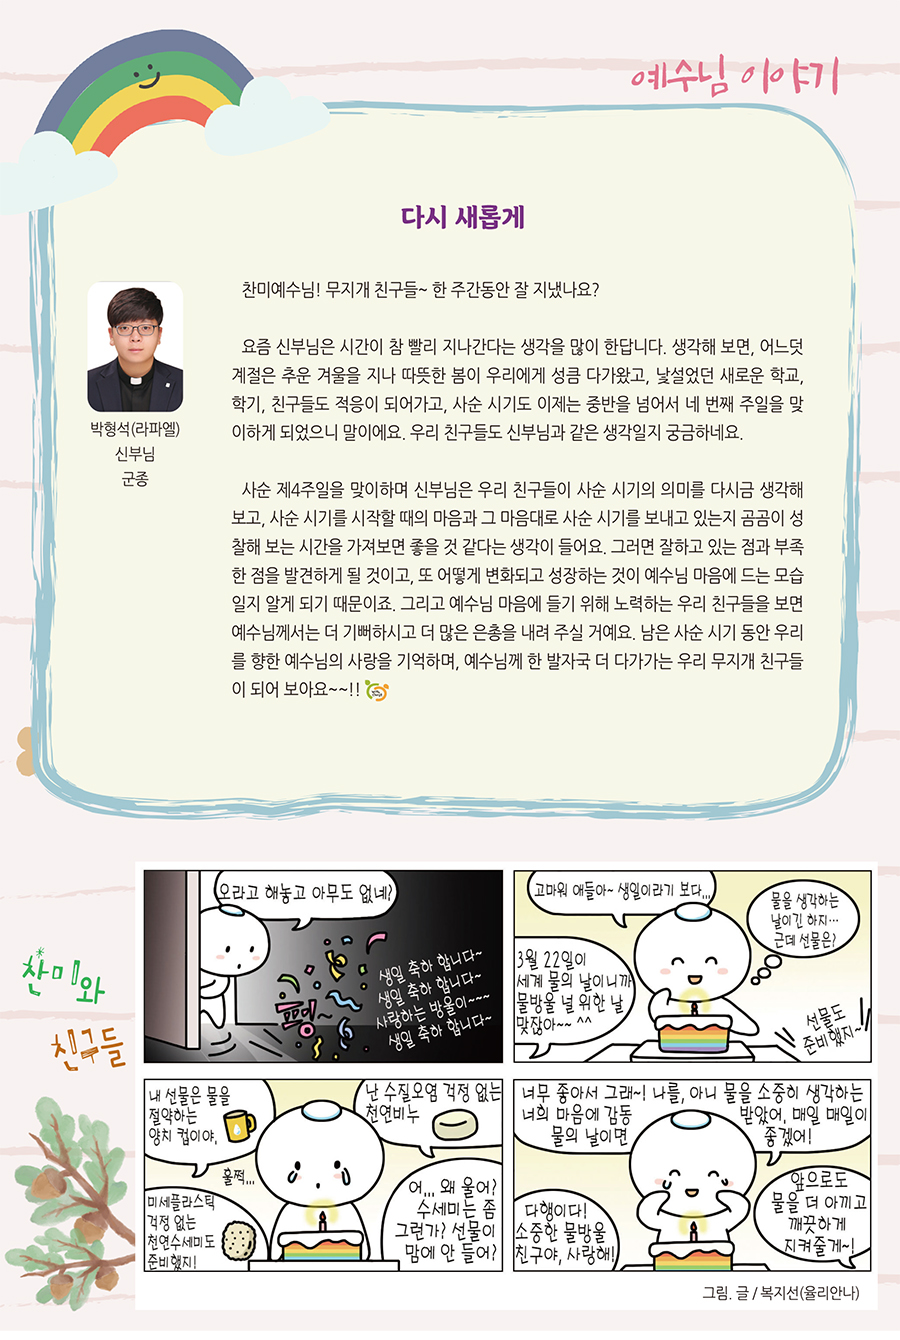 예수님 이야기
다시 새롭게
찬미예수님! 무지개 친구들~ 한 주간동안 잘 지냈나요?
요즘 신부님은 시간이 참 빨리 지나간다는 생각을 많이 한답니다. 생각해 보면, 어느덧
계절은 추운 겨울을 지나 따뜻한 봄이 우리에게 성큼 다가왔고, 낯설었던 새로운 학교,
학기, 친구들도 적응이 되어가고, 사순 시기도 이제는 중반을 넘어서 네 번째 주일을 맞
이하게 되었으니 말이에요. 우리 친구들도 신부님과 같은 생각일지 궁금하네요.
사순 제4주일을 맞이하며 신부님은 우리 친구들이 사순 시기의 의미를 다시금 생각해
보고, 사순 시기를 시작할 때의 마음과 그 마음대로 사순 시기를 보내고 있는지 곰곰이 성
찰해 보는 시간을 가져보면 좋을 것 같다는 생각이 들어요. 그러면 잘하고 있는 점과 부족
한 점을 발견하게 될 것이고, 또 어떻게 변화되고 성장하는 것이 예수님 마음에 드는 모습
일지 알게 되기 때문이죠. 그리고 예수님 마음에 들기 위해 노력하는 우리 친구들을 보면
예수님께서는 더 기뻐하시고 더 많은 은총을 내려 주실 거예요. 남은 사순 시기 동안 우리
를 향한 예수님의 사랑을 기억하며, 예수님께 한 발자국 더 다가가는 우리 무지개 친구들
이 되어 보아요~~!!
박형석(라파엘)
신부님
군종
찬미와
친구들
오라고 해놓고 아무도 없네?
생일 축하 합니다~
생일 축하 합니다~
사랑하는 방울이~~~
생일 축하 합니다~
고마워 애들아~ 생일이라기 보다...
물을 생각하는
날이긴 하지…
근데 선물은?
3월 22일이
세계 물의 날이니까
물방울 널 위한 날
맞잖아~~ ^^
선물도
준비했지~
내 선물은 물을
절약하는
양치 컵이야,
난 수질오염 걱정 없는
천연비누
훌쩍...
미세플라스틱
걱정 없는
천연수세미도
준비했지!
어... 왜 울어?
수세미는 좀
그런가? 선물이
맘에 안 들어?
너무 좋아서 그래~! 나를, 아니 물을 소중히 생각하는
너희 마음에 감동 받았어, 매일 매일이
물의 날이면 좋겠어!
다행이다!
소중한 물방울
친구야, 사랑해!
앞으로도
물을 더 아끼고
깨끗하게
지켜줄게~!
그림. 글 / 복지선(율리안나)